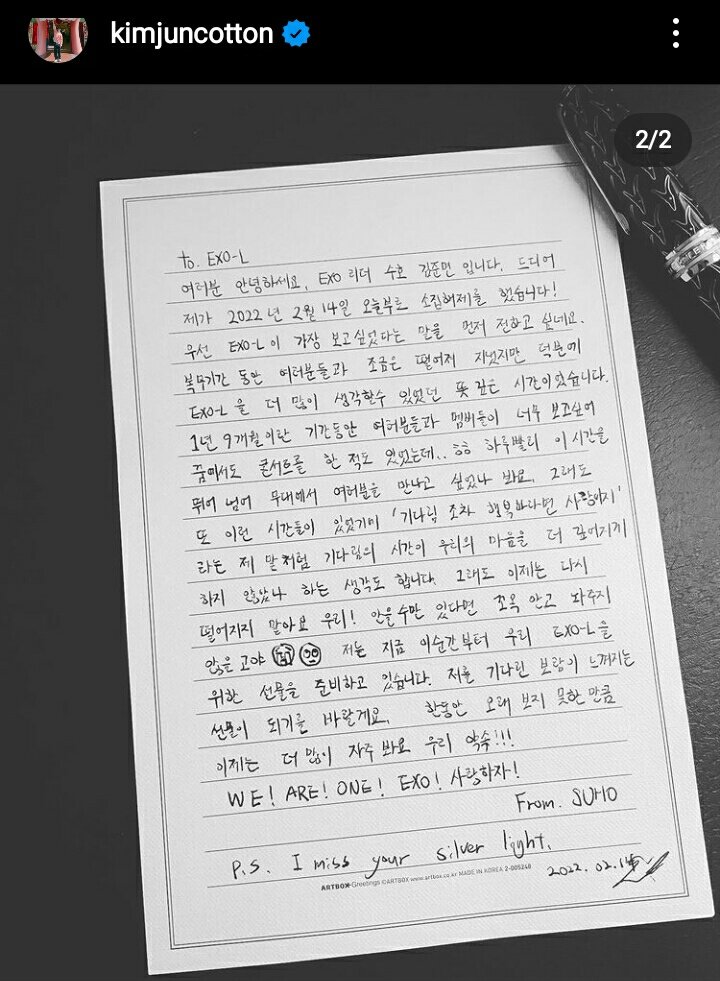 kimjuncotton
2/2
to. EXO-L
여러분 안녕하세요, EXO 리더 수호 김준면 입니다. 드디어
제가 2022년 2월 14일 오늘부로 소집해제를 했습니다!
우선 EXO-L이 가장 보고싶었다는 말을 먼저 전하고 싶네요.
복무기간 동안 여러분들과 조금은 떨어져 지냈지만 덕분에
EXO-L을 더 많이 생각할수 있었던 뜻 깊은 시간이었습니다.
1년 9개월이란 기간동안 여러분들과 멤버들이 너무 보고싶어
꿈에서도 콘서트를 한 적도 있었는데.. ㅎㅎ 하루빨리 이 시간을
뛰어 넘어 무대에서 여러분을 만나고 싶었나 봐요. 그래도
또 이런 시간들이 있었기에 '기다림 조차 행복하다면 사랑이지'
라는 제 말처럼 기다림의 시간이 우리의 마음을 더 깊어지게
하지 않았나 하는 생각도 합니다. 그래도 이제는 다시
떨어지지 말아요 우리! 안을수만 있다면 꼬옥 안고 놔주지
않을 고야 저는 지금 이순간부터 우리 EXO-L을
위한 선물을 준비하고 있습니다. 저를 기다린 보람이 느껴지는
선물이 되기를 바랄게요. 한동안 오래 보지 못한 만큼
이제는 더 많이 자주 봐요 우리 약속!!!
WE! ARE! ONE! EXO! 사랑하자!
From. SUHO
P.S. I miss your silver light.
2022. 02. 14
ARTBOX Greetings ©ARTBOX www.artbox.co.kr MADE IN KOREA 2-005240